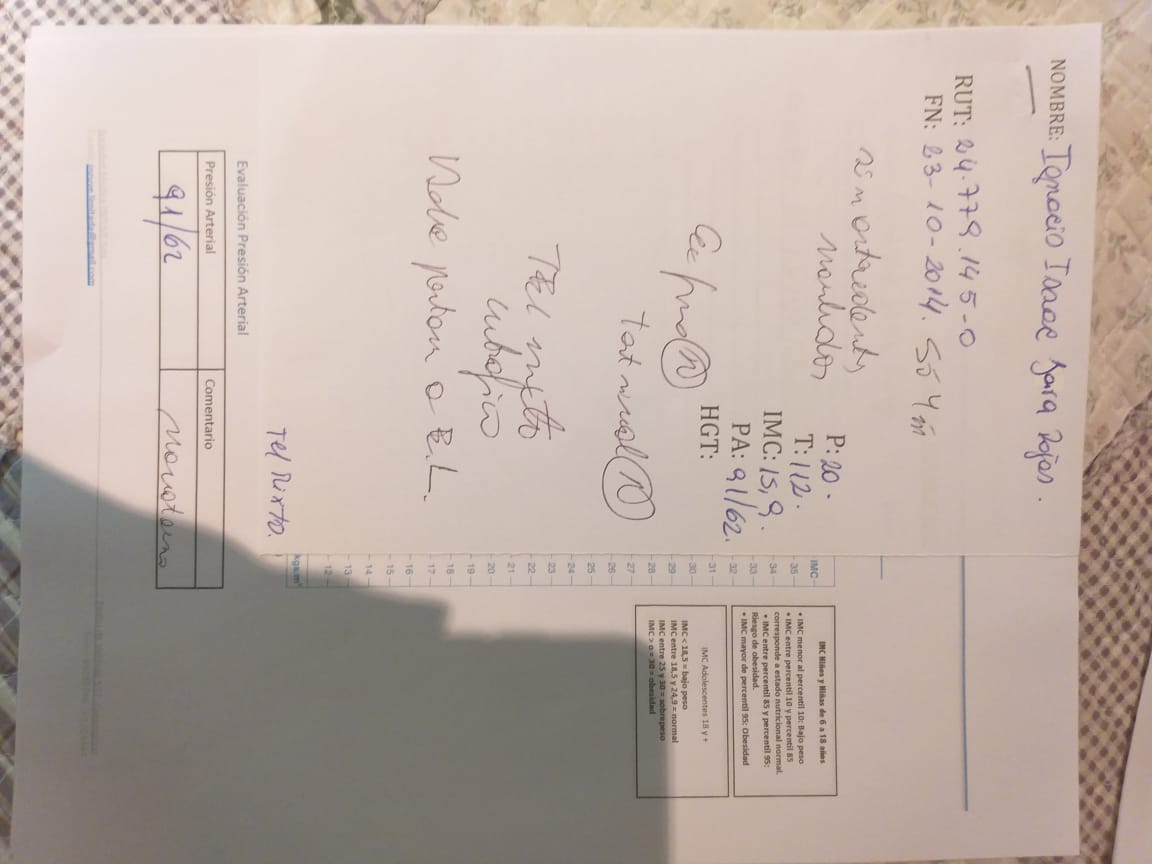 NOMBRE: Ignacio Isaac Jara Rojas.
RUT: 24.779.145-0
FN: 23-10-2014. 5 4
P: 20.
T: 112.
IMC: 15,9.
PA: 91/62.
HGT:
N
N
TEL mixto
a E.L.
Tel Mixto.
IMC
35
34
33
32
31
30
29
28
27
26
25
24
23
22
21
20
19
18
17
16
15
14
13
12
kgs/m²
IMC Niños y Niñas de 6 a 18 años
• IMC menor al percentil 10: Bajo peso
• IMC entre percentil 10 y percentil 85
corresponde a estado nutricional normal.
• IMC entre percentil 85 y percentil 95:
Riesgo de obesidad.
• IMC mayor de percentil 95: Obesidad
IMC Adolescentes 18 y +
IMC < 18,5 = bajo peso
IMC entre 18,5 y 24,9 = normal
IMC entre 25 y 30 = sobrepeso
IMC > o = 30 = obesidad
Evaluación Presión Arterial
Presión Arterial Comentario
91/62
inouve.limitada@gmail.com